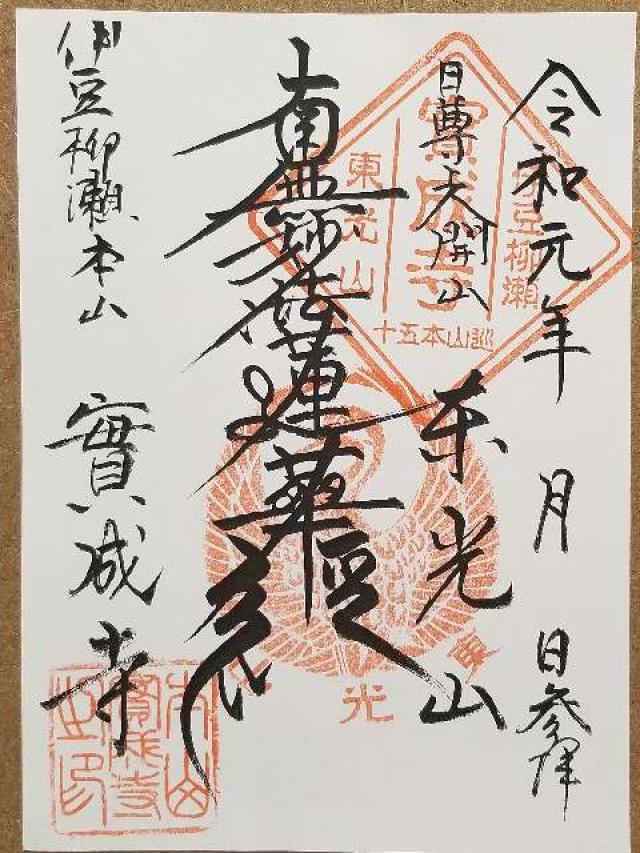 令和元年 月 日参拝
日尊天開山
東光山
南無妙法蓮華経
伊豆柳瀬本山 實成寺
伊豆柳瀬
實成寺
東光山
十五本山巡
東
光
本山
實成寺